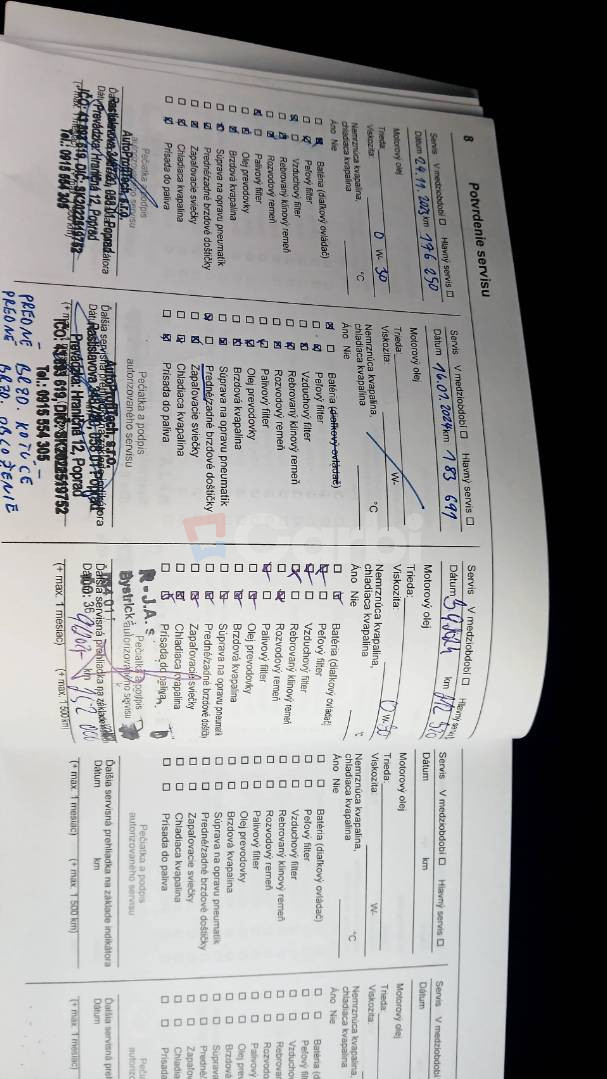 8
Potvrdenie servisu
Servis V medziobdobí Hlavný servis
Dátum 24.11.2023 km 176 250
Motorový olej
Trieda:
Viskozita: 0 W- 30
Nemrznúca kvapalina,
chladiaca kvapalina °C
Áno Nie
Batéria (diaľkový ovládač)
Peľový filter
Vzduchový filter
Rebrovaný klinový remeň
Rozvodový remeň
Palivový filter
Olej prevodovky
Brzdová kvapalina
Súprava na opravu pneumatík
Predné/zadné brzdové doštičky
Zapaľovacie sviečky
Chladiaca kvapalina
Prísada do paliva
Pečiatka a podpis
autorizovaného servisu
AutoProfiTech, s.r.o.
Prevádzka: Hraničná 12, Poprad
Tel.: 0915 554 305
Servis V medziobdobí Hlavný servis
Dátum 16.01.2024 km 183 691
Motorový olej
Trieda:
Viskozita: W-
Nemrznúca kvapalina,
chladiaca kvapalina °C
Áno Nie
Batéria (diaľkový ovládač)
Peľový filter
Vzduchový filter
Rebrovaný klinový remeň
Rozvodový remeň
Palivový filter
Olej prevodovky
Brzdová kvapalina
Súprava na opravu pneumatík
Predné/zadné brzdové doštičky
Zapaľovacie sviečky
Chladiaca kvapalina
Prísada do paliva
Pečiatka a podpis
autorizovaného servisu
Ďalšia servisná
AutoProfiTech, s.r.o.
Prevádzka: Hraničná 12, Poprad
Tel.: 0915 554 305
PREDNÉ BRZD. KOTÚČE
PREDNÉ BRZD. OBLOŽENIE
Servis V medziobdobí Hlavný
Dátum km
Motorový olej
Trieda:
Viskozita: 0 W- 30
Nemrznúca kvapalina,
chladiaca kvapalina
Áno Nie
Batéria (diaľkový ovládač)
Peľový filter
Vzduchový filter
Rebrovaný klinový remeň
Rozvodový remeň
Palivový filter
Olej prevodovky
Brzdová kvapalina
Súprava na opravu pneumatík
Predné/zadné brzdové doštičky
Zapaľovacie sviečky
Chladiaca kvapalina
Prísada do paliva
Pečiatka a podpis
autorizovaného servisu
Ďalšia servisná prehliadka na základe
Dátum: km
(+ max. 1 mesiac) (+ max. 1 500 km)
Servis V medziobdobí Hlavný servis
Dátum km
Motorový olej
Trieda:
Viskozita: W-
Nemrznúca kvapalina,
chladiaca kvapalina °C
Áno Nie
Batéria (diaľkový ovládač)
Peľový filter
Vzduchový filter
Rebrovaný klinový remeň
Rozvodový remeň
Palivový filter
Olej prevodovky
Brzdová kvapalina
Súprava na opravu pneumatík
Predné/zadné brzdové doštičky
Zapaľovacie sviečky
Chladiaca kvapalina
Prísada do paliva
Pečiatka a podpis
autorizovaného servisu
Ďalšia servisná prehliadka na základe indikátora
Dátum km
(+ max. 1 mesiac) (+ max. 1 500 km)
Servis V medziobdobí
Dátum
Motorový olej
Trieda:
Viskozita:
Nemrznúca kvapalina,
chladiaca kvapalina
Áno Nie
Batéria (d
Peľový filter
Vzduchový
Rebrovaný
Rozvodový
Palivový
Olej prev
Brzdová
Súprava
Predné/
Zapaľov
Chladia
Prísada
Ďalšia servisná preh
Dátum
(+ max. 1 mesiac)